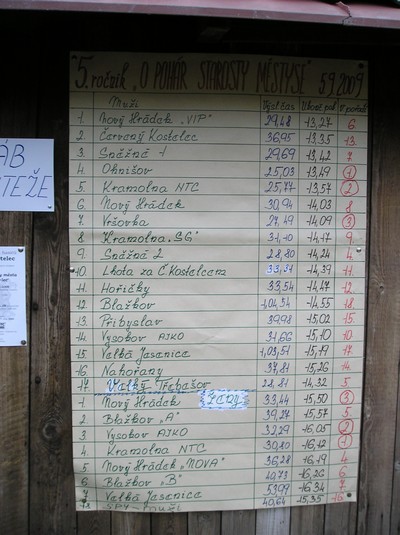 5. ročník „O POHÁR STAROSTY MĚSTYSE" 5.9.2009
Muži Výsl. čas
1. Nový Hrádek „VIP" 29,48 13,27 6
2. Červený Kostelec 36,95 13,35 13.
3. Sněžná 1 29,69 13,42 7
4. Ohnišov 25,03 13,49 1
5. Kramolna NTC 25,77 13,57 2
6. Nový Hrádek 30,94 14,03 8
7. Vršovka 27,49 14,09 3
8. Kramolna „SG" 31,10 14,17 9.
9. Sněžná 2 28,80 14,24 4
10. Lhota za Č Kostelcem 33,31 14,39 11.
11. Hořičky 33,54 14,47 12
12. Blažkov 1,04,54 14,55 18.
13. Přibyslav 39,98 15,02 15.
14. Vysokov AJKO 31,66 15,10 10
15. Velká Jesenice 1,03,51 15,19 17
16. Nahořany 37,81 15,26 14
17. Velký Třebešov 28,81 14,32 5
1 Nový Hrádek ŽENY 33,44 15,50 3
2. Blažkov „A" 39,27 15,57 5
3 Vysokov AJKO 32,29 16,05 2
4. Kramolna NTC 30,80 16,12 1
5 Nový Hrádek „NOVA" 36,28 16,19 4
6 Blažkov „B" 40,73 16,26 6
7 Velká Jesenice 53,97 16,34 7
40,64 15,35 16
ÁB
TEŽE